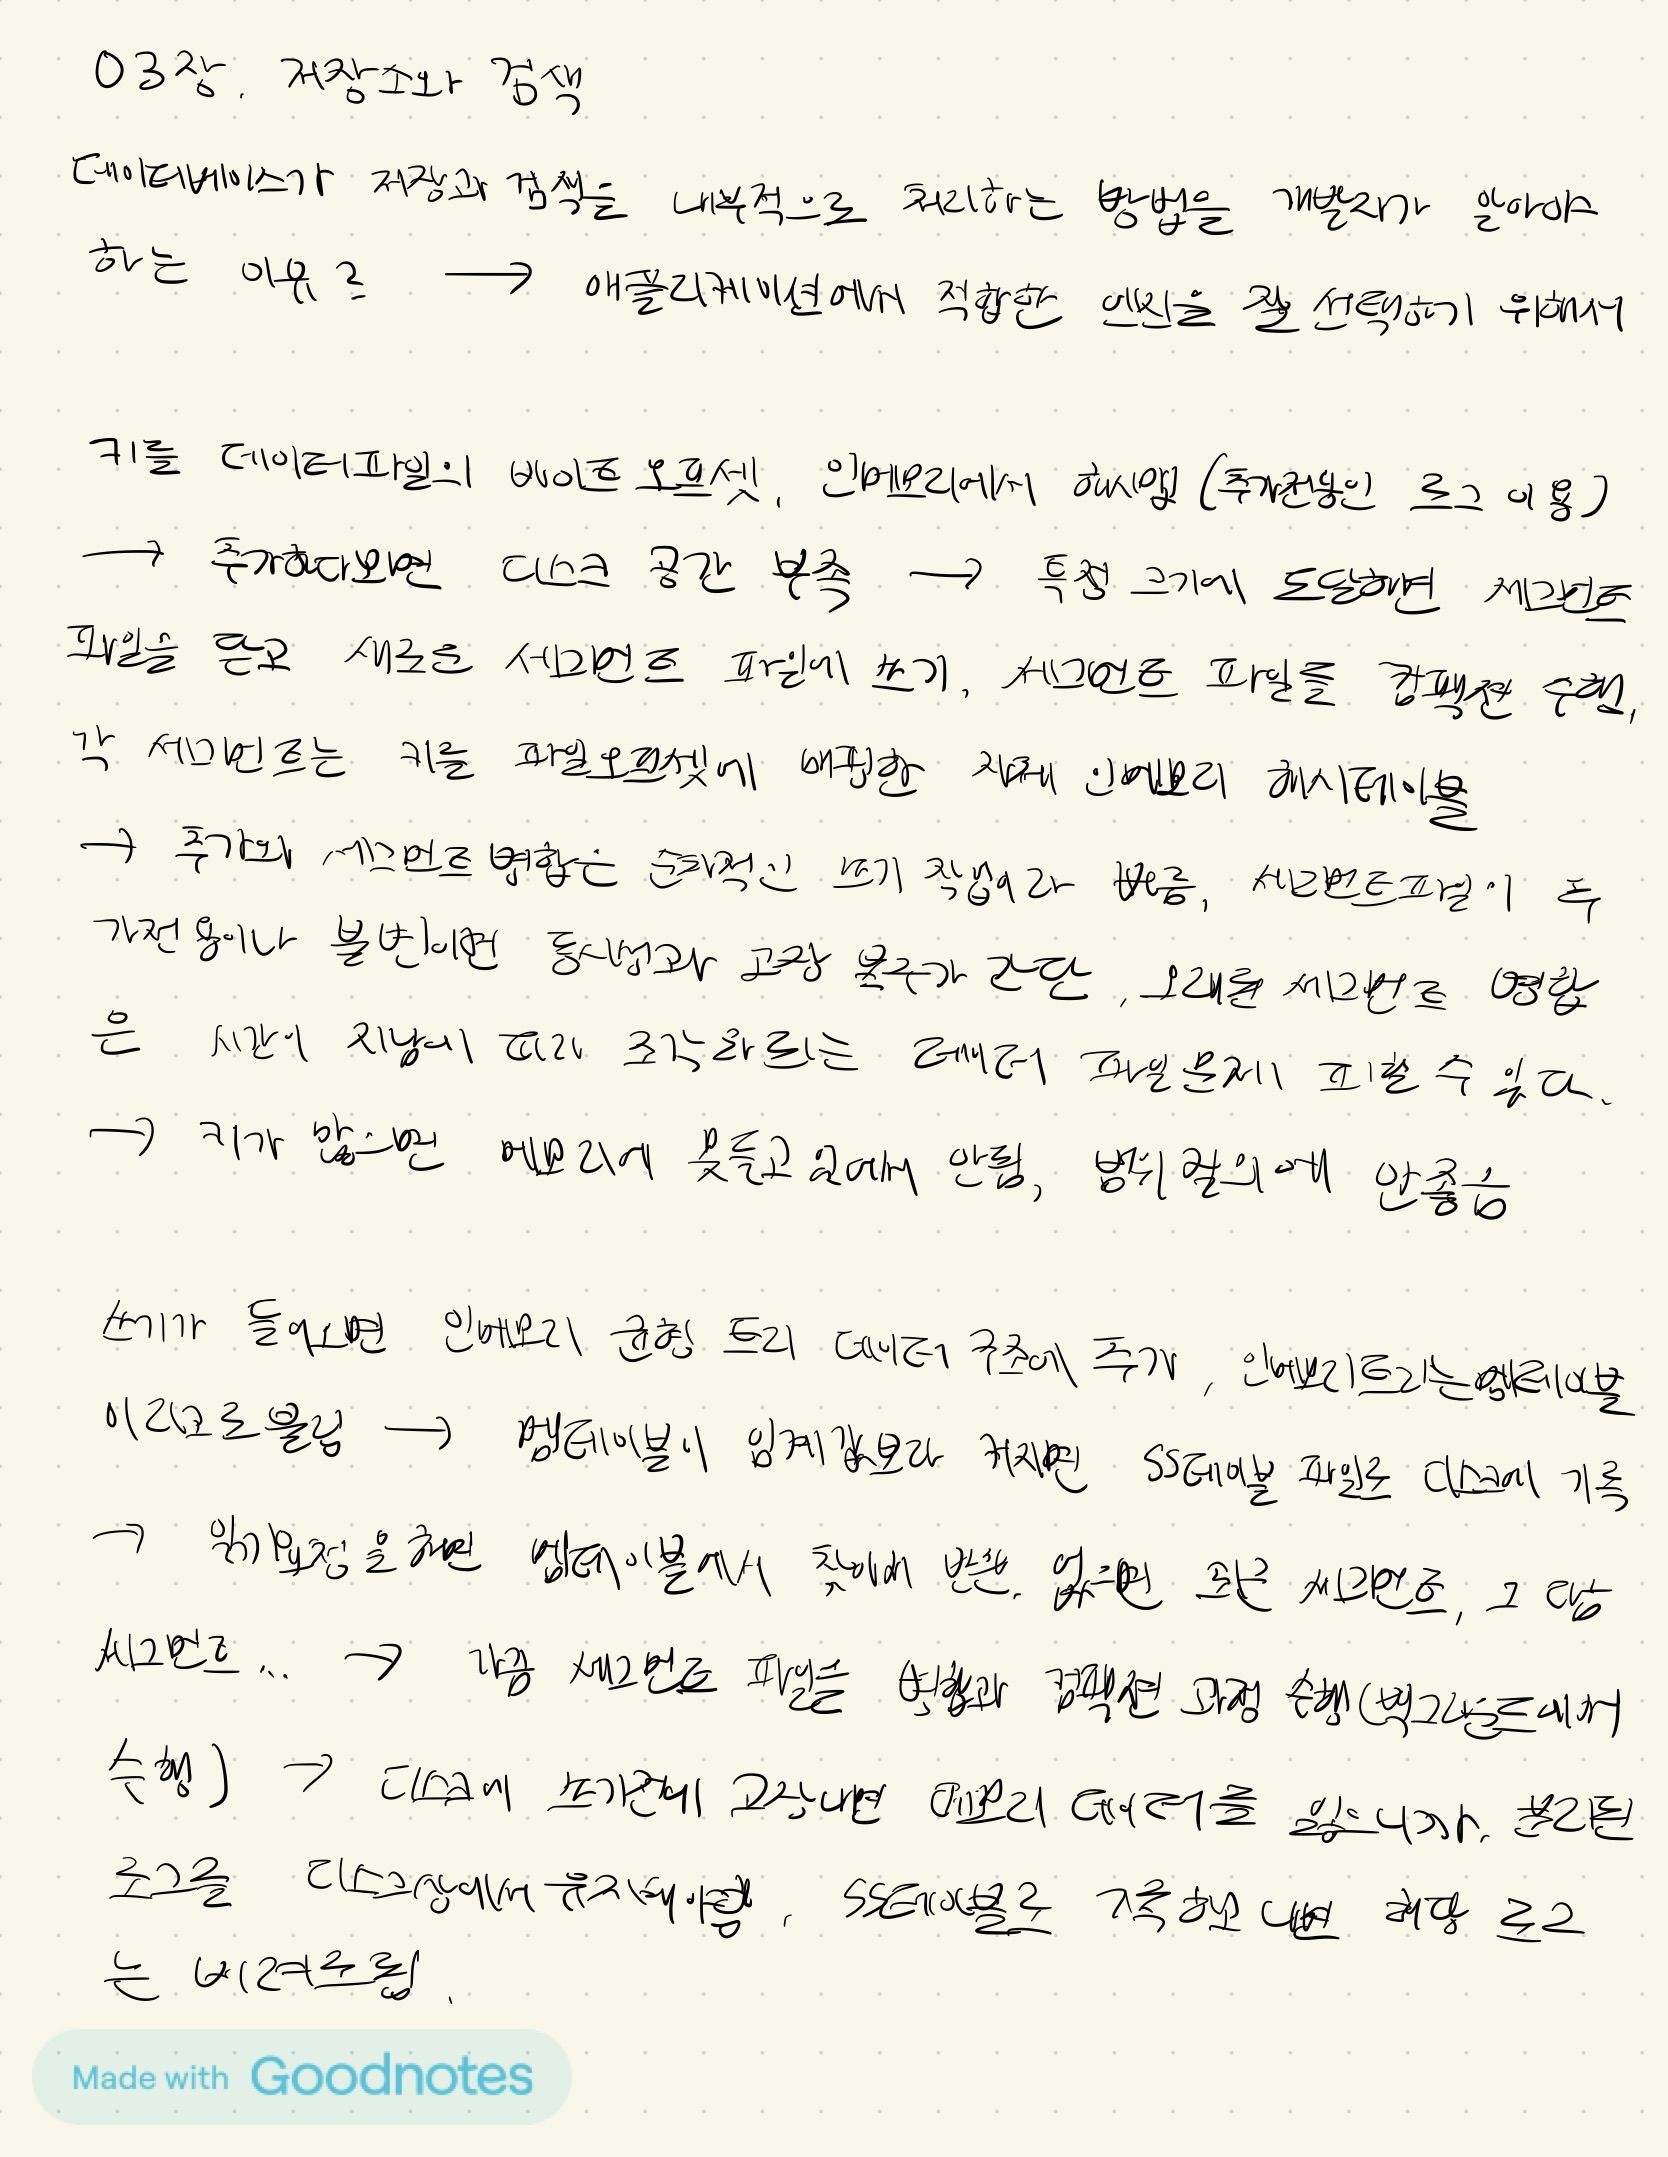 03장. 저장소와 검색
데이터베이스가 저장과 검색을 내부적으로 처리하는 방법을 개발자가 알아야
하는 이유? → 애플리케이션에서 적합한 엔진을 잘 선택하기 위해서
키를 데이터파일의 바이트 오프셋, 인메모리에서 해시맵 (추가전용인 로그 이용)
→ 추가하다보면 디스크 공간 부족 → 특정 크기에 도달하면 세그먼트
파일을 닫고 새로운 세그먼트 파일에 쓰기, 세그먼트 파일들 컴팩션 수행,
각 세그먼트는 키를 파일오프셋에 매핑한 자체 인메모리 해시테이블
→ 추가와 세그먼트 병합은 순차적인 쓰기 작업이라 빠름, 세그먼트파일이 추
가전용이나 불변이면 동시성과 고장 복구가 간단, 오래된 세그먼트 병합
은 시간이 지남에 따라 조각화되는 데이터 파일문제 피할 수 있다.
→ 키가 많으면 메모리에 못들고 있어서 안됨, 범위 질의에 안좋음
쓰기가 들어오면 인메모리 균형 트리 데이터 구조에 추가, 인메모리트리는멤테이블
이라고도불림 → 멤테이블이 임계값보다 커지면 SS테이블 파일로 디스크에 기록
→ 읽기요청을하면 멤테이블에서 찾아서 반환. 없으면 최근 세그먼트, 그 다음
세그먼트... → 가끔 세그먼트 파일들 병합과 컴팩션 과정 수행(백그라운드에서
수행) → 디스크에 쓰기전에 고장나면 메모리 데이터를 잃으니까. 분리된
로그를 디스크상에서 유지해야함, SS테이블로 기록하고 나면 해당 로그
는 버려도됨.
Made with Goodnotes